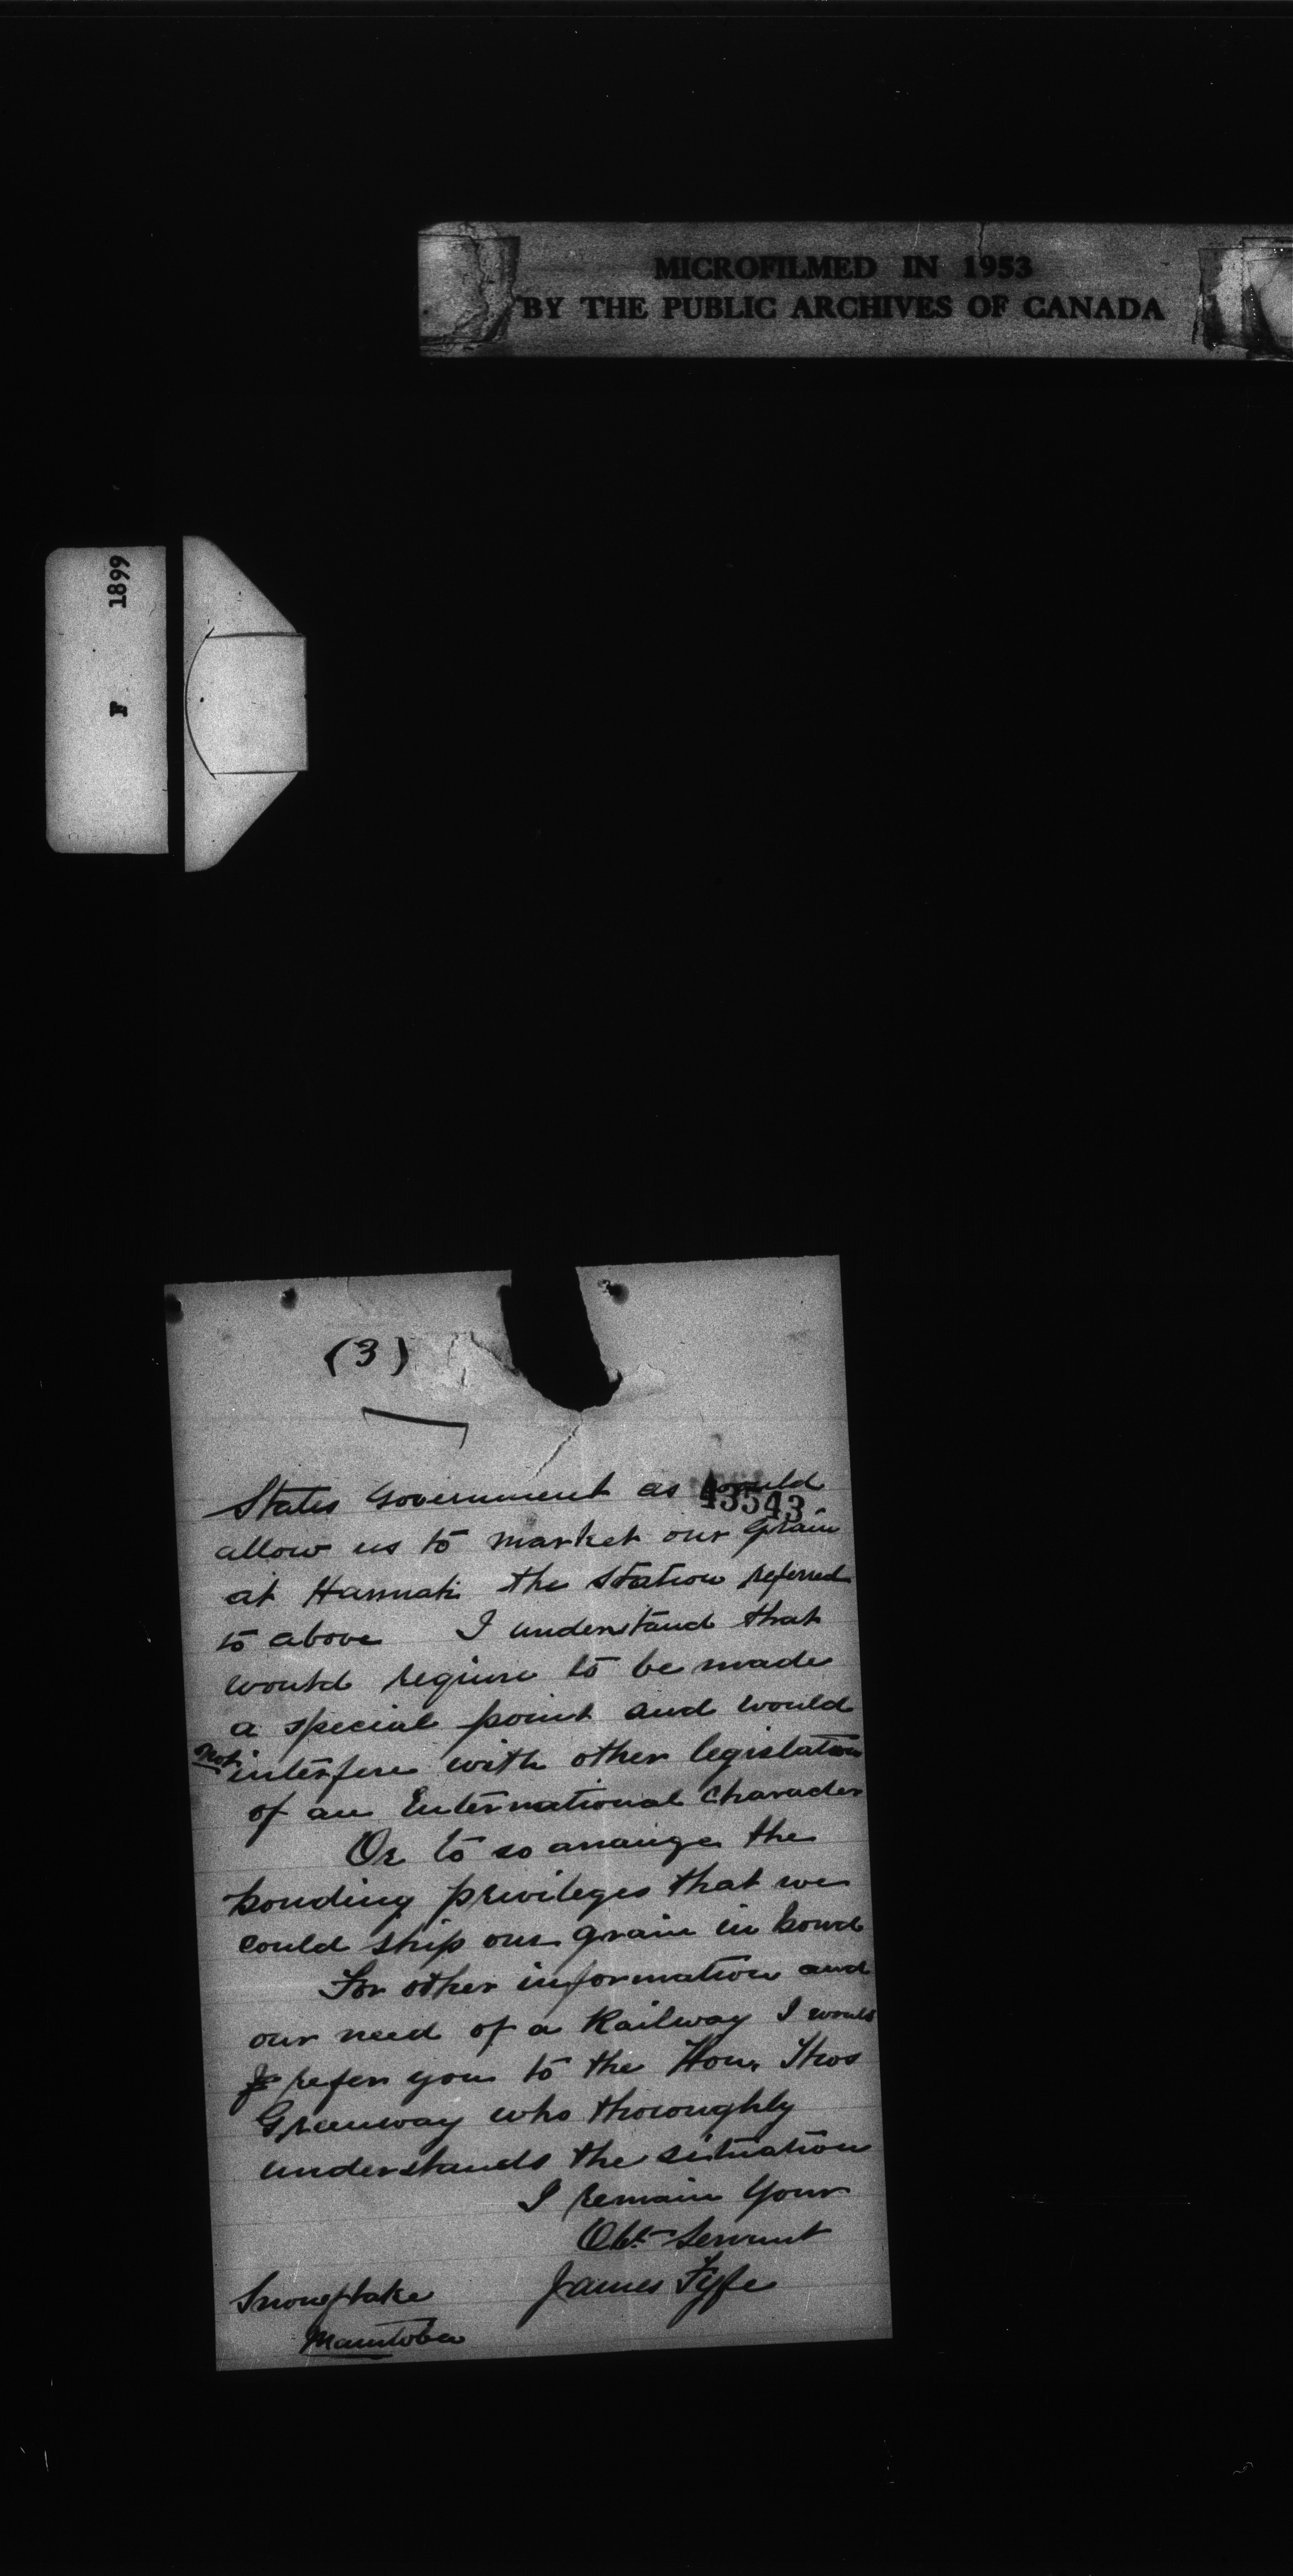 MICROFILMED IN 1953
BY THE PUBLIC ARCHIVES OF CANADA
F 1899
(3)
43543
States Government as would
allow us to market our Grain
at Hannah the station referred
to above I understand that
would require to be made
a special point and would
not interfere with other legislation
of an International Character
Or to so arrange the
bonding privileges that we
could ship our grain in bond
For other information and
our need of a Railway I would
refer you to the Hon. Thos
Greenway who thoroughly
understands the situation
I remain Your
Obt Servant
James Fyfe
Snowflake
Manitoba